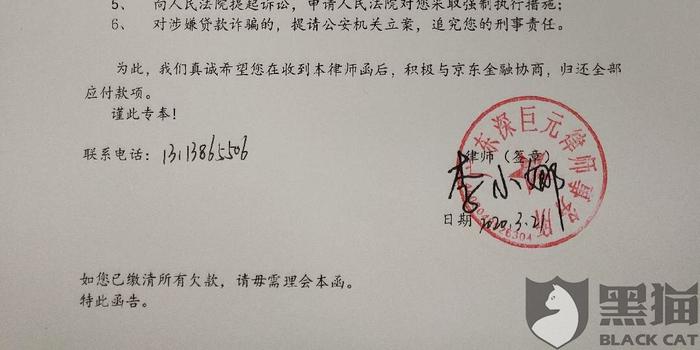 5、 向人民法院提起诉讼，申请人民法院对您采取强制执行措施；
6、 对涉嫌贷款诈骗的，提请公安机关立案，追究您的刑事责任。
为此，我们真诚希望您在收到本律师函后，积极与京东金融协商，归还全部
应付款项。
谨此专奉！
广东深巨元律师事务所
联系电话：13113865506
律师（签章）
李小娜
日期 2020.3.21
如您已缴清所有欠款，请毋需理会本函。
特此函告。
黑猫
BLACK CAT